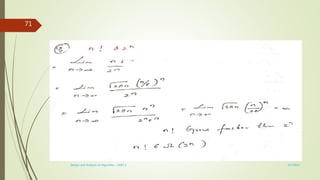 71
n! & 2ⁿ
= Lim n→∞ n! / 2ⁿ
= Lim n→∞ √2πn (n/e)ⁿ / 2ⁿ
= Lim n→∞ √2πn nⁿ / 2ⁿ eⁿ = Lim n→∞ √2πn (n/2e)ⁿ = ∞
n! Grows faster than 2ⁿ
n! ∈ Ω(2ⁿ)
Design and Analysis of Algorithm - UNIT 1